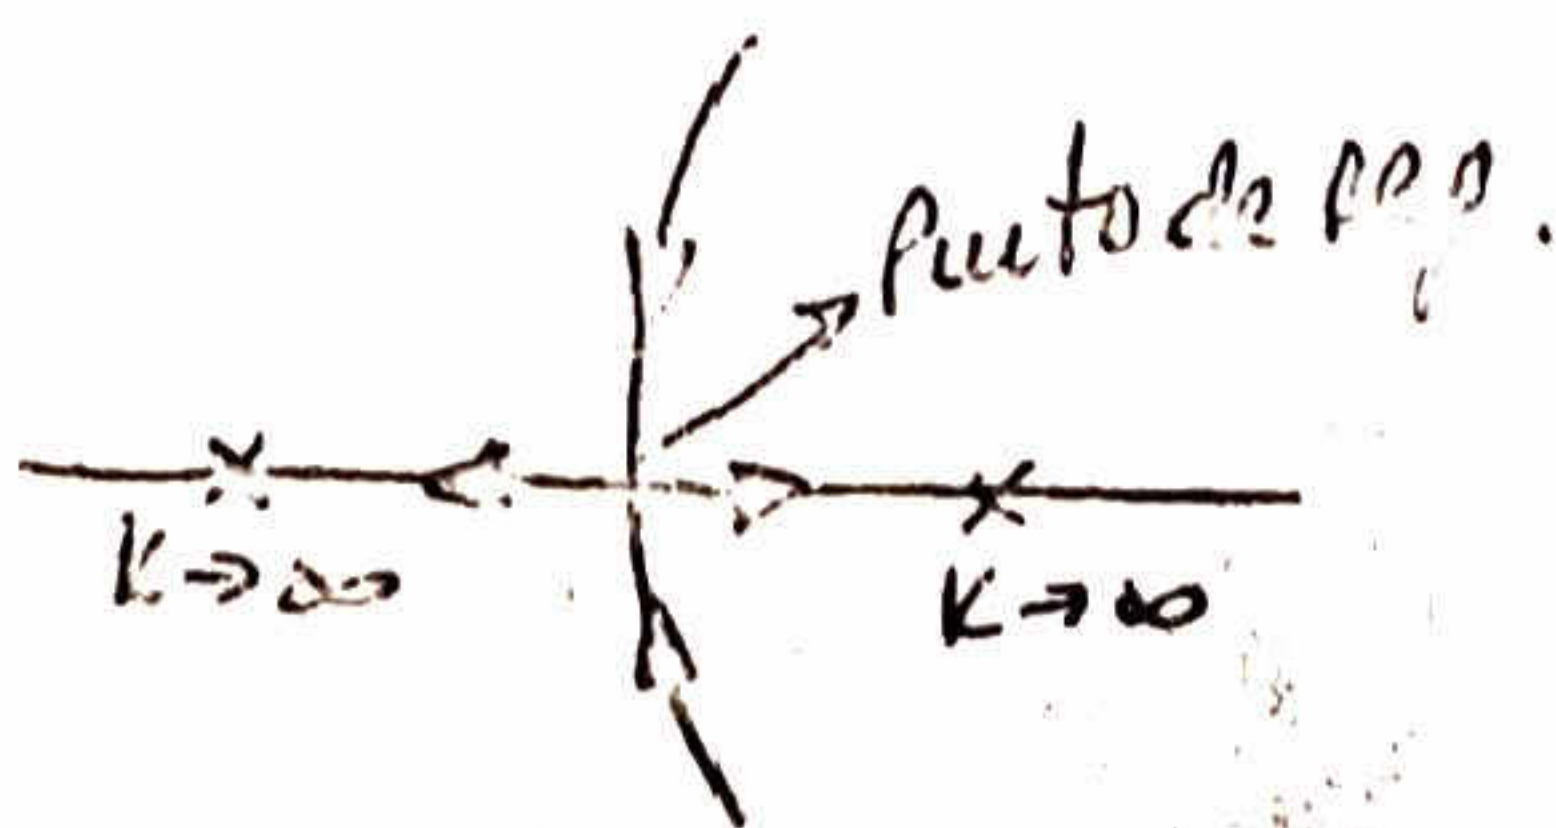 Punto de
K → ∞
K → ∞